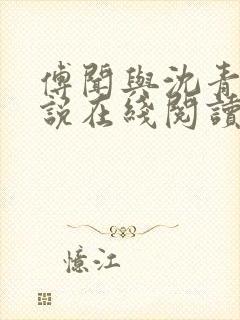 傅聞與沈青
說在綫閱讀
憶江